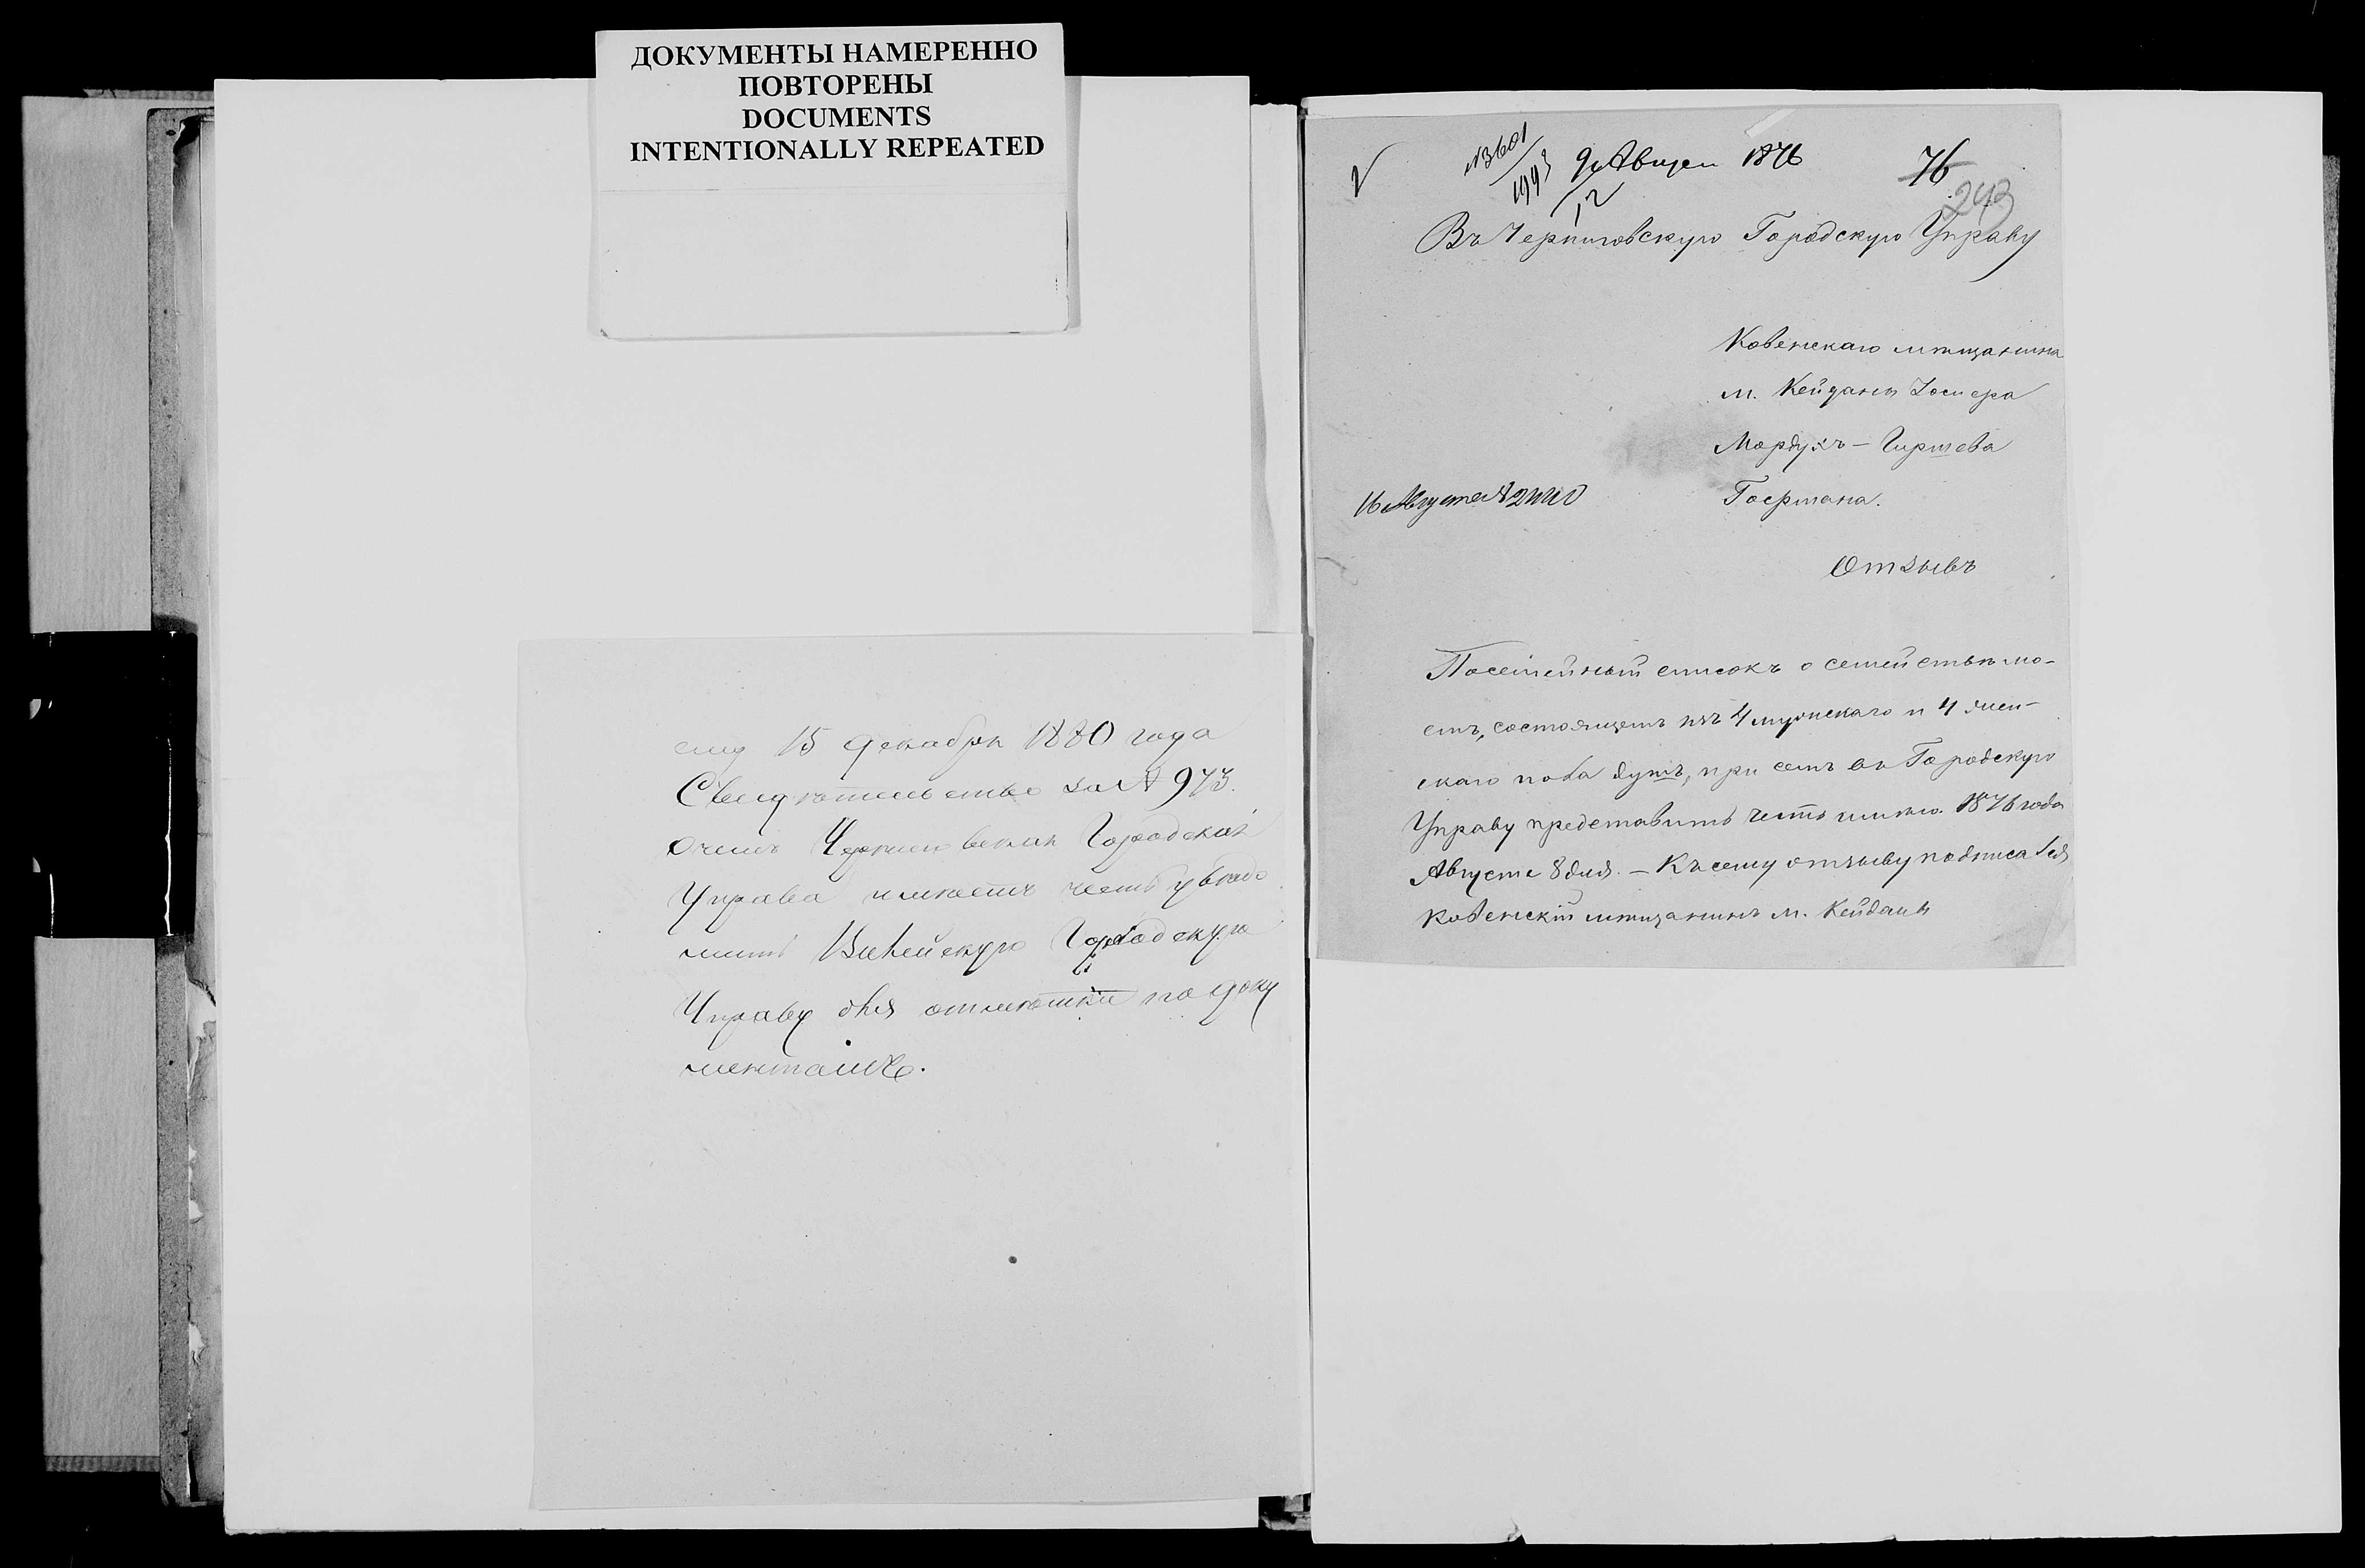 ДОКУМЕНТЫ НАМЕРЕННО
ПОВТОРЕНЫ
DOCUMENTS
INTENTIONALLY REPEATED
ему 15 декабря 1880 года
Свидѣтельство за № 973.
о чемъ Черниговская Городская
Управа имѣетъ честь увѣдо
мить Вилейскую Городскую
Управу для отмѣтки по доку
ментамъ.
№3601
1993
9 Август 1876
12
76
243
Въ Черниговскую Городскую Управу
Ковенскаго мѣщанина
м. Кейданъ
Мордухъ-Гиршева
Гофмана.
16 Августа №
Отзывъ
Посемейный списокъ о семействѣ мо-
емъ, состоящемъ изъ 4 мужескаго и 4 жен-
скаго пола душъ, при семъ въ Городскую
Управу представить честь имѣю. 1876 года
Августа 8 дня. — Къ сему отзыву подписался
Ковенскій мѣщанинъ м. Кейданъ